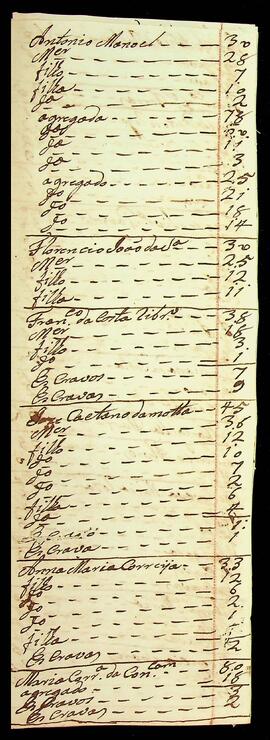 Antonio Manoel 30
Mer 28
fillo 7
filla 10
Ja 2
agregada 78
Ja 20
Ja 11
Ja 3
agregado 25
Jo 21
Jo 18
Jo 14
Florencio João da S.ª 30
Mer 25
fillo 12
filla 11
Fran.co da Costa Ribr.º 38
Mer 18
fillo 3
Jo 1
Escravos 7
Escravas 9
Caetano da motta 45
Mer 36
fillo 12
Jo 10
Jo 7
Jo 2
Jo 6
filla 4
Ja
Escravo 1
Escrava 1
Anna Maria Correija 33
fillo
Jo 6
Jo 2
Jo 1
filla
Escravas 2
Maria Corr.ª da Con.cam 80
agregado 18
Escravos
Escravas 2